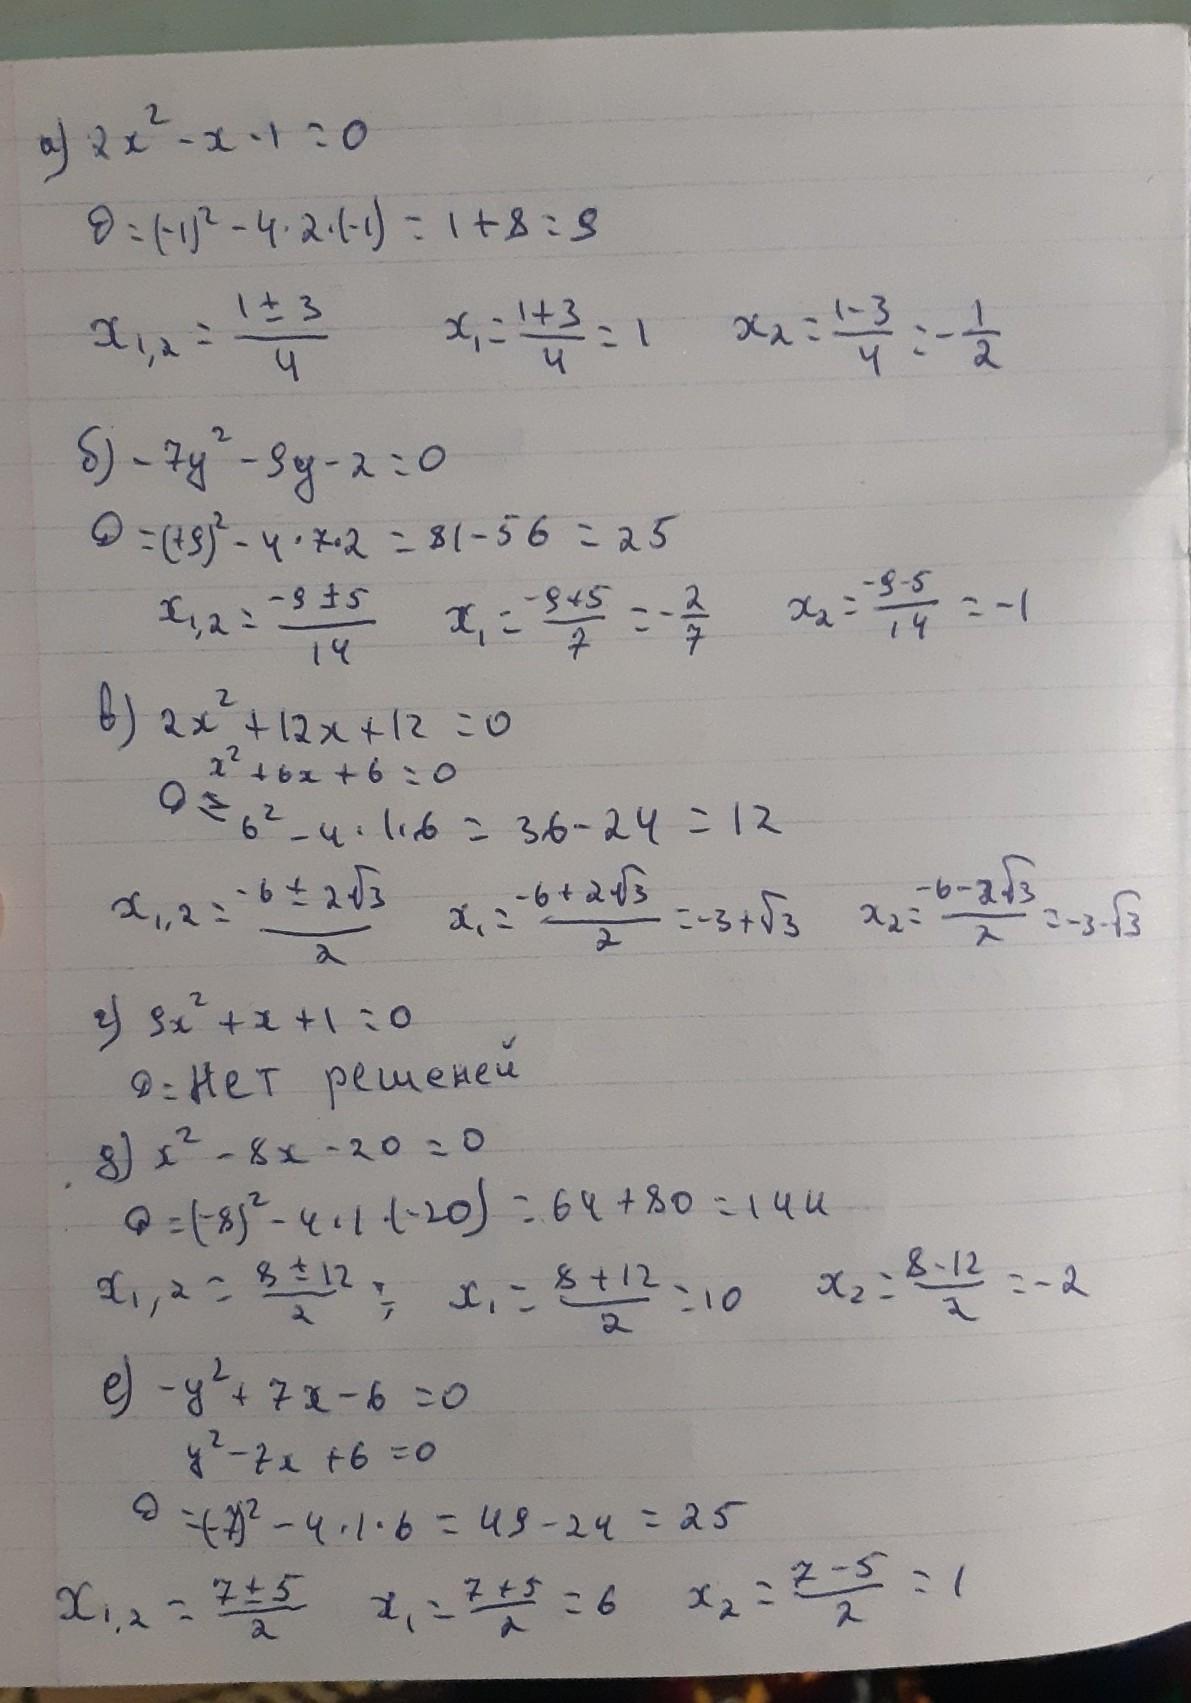 а) 2x² - x - 1 = 0
D = (-1)² - 4·2·(-1) = 1 + 8 = 9
x₁,₂ = (1 ± 3)/4 x₁ = (1+3)/4 = 1 x₂ = (1-3)/4 = -1/2
б) -7y² - 9y - 2 = 0
D = (+9)² - 4·7·2 = 81 - 56 = 25
x₁,₂ = (-9 ± 5)/14 x₁ = (-9+5)/7 = -2/7 x₂ = (-9-5)/14 = -1
в) 2x² + 12x + 12 = 0
x² + 6x + 6 = 0
D = 6² - 4·1·6 = 36 - 24 = 12
x₁,₂ = (-6 ± 2√3)/2 x₁ = (-6 + 2√3)/2 = -3 + √3 x₂ = (-6 - 2√3)/2 = -3 - √3
г) 9x² + x + 1 = 0
D = Нет решеней
д) x² - 8x - 20 = 0
D = (-8)² - 4·1·(-20) = 64 + 80 = 144
x₁,₂ = (8 ± 12)/2 ; x₁ = (8 + 12)/2 = 10 x₂ = (8-12)/2 = -2
е) -y² + 7x - 6 = 0
y² - 7x + 6 = 0
D = (-7)² - 4·1·6 = 49 - 24 = 25
x₁,₂ = (7 ± 5)/2 x₁ = (7+5)/2 = 6 x₂ = (7-5)/2 = 1